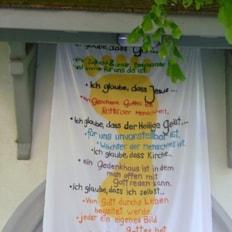 • Ich glaube, dass Gott...
und immer für uns da ist.
• Ich glaube, dass Jesus...
ein Geschenk Gottes ist
• Ich glaube, dass der Heilige Geist...
für uns unvorstellbar ist.
Wächter der menschen ist.
• Ich glaube, dass Kirche...
ein Gedenkhaus ist in dem
man offen mit
Gott reden kann.
• Ich glaube, dass ich selbst...
• Von Gott durchs Leben
begleitet werde
jeder ein eigenes Bild
Gottes hat